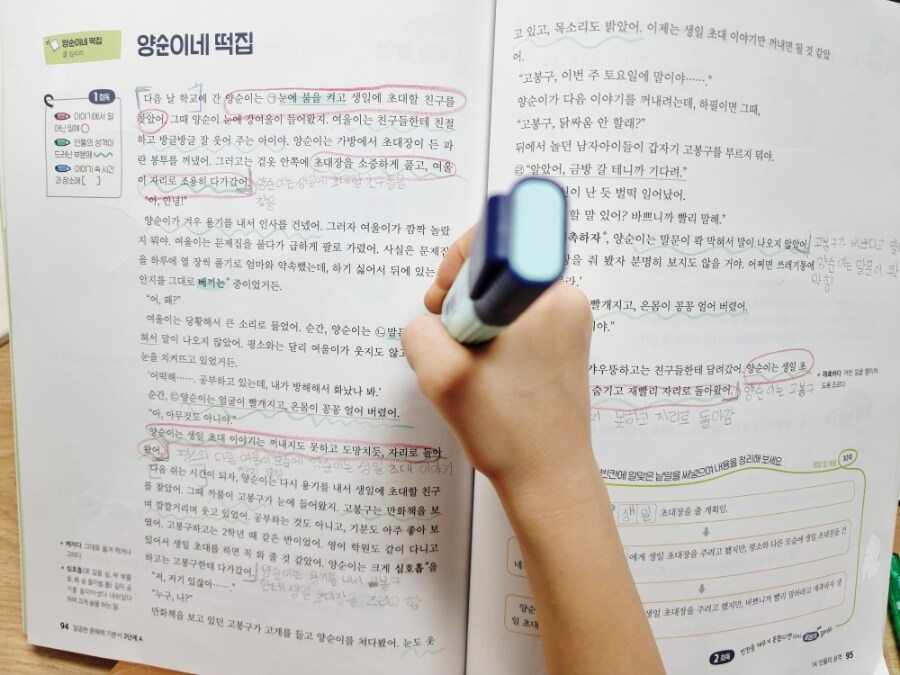 양순이네 떡집
글 김리리
양순이네 떡집
1 회독
이야기에서 일
어난 일에 ○
인물의 성격이
드러난 부분에
이야기 속 시간
과 장소에 [ ]
다음 날 학교에 간 양순이는 ㉠눈에 불을 켜고 생일에 초대할 친구를
찾았어. 그때 양순이 눈에 강여울이 들어왔지. 여울이는 친구들한테 친절
하고 방글방글 잘 웃어 주는 아이야. 양순이는 가방에서 초대장이 든 파
란 봉투를 꺼냈어. 그러고는 겉옷 안쪽에 초대장을 소중하게 품고, 여울
이 자리로 조용히 다가갔어.
양순이는 생일에 초대할 친구들을
찾음
"아, 안녕!"
양순이가 겨우 용기를 내서 인사를 건넸어. 그러자 여울이가 깜짝 놀랐
지 뭐야. 여울이는 문제집을 풀다가 급하게 팔로 가렸어. 사실은 문제집
을 하루에 열 장씩 풀기로 엄마와 약속했는데, 하기 싫어서 뒤에 있는
안지를 그대로 베끼는* 중이었거든.
"어, 왜?"
여울이는 당황해서 큰 소리로 물었어. 순간, 양순이는 ㉡말문
혀서 말이 나오지 않았어. 평소와는 달리 여울이가 웃지도 않고
눈을 치켜뜨고 있었거든.
'어떡해…… 공부하고 있는데, 내가 방해해서 화났나 봐.'
순간, ㉢양순이는 얼굴이 빨개지고, 온몸이 꽁꽁 얼어 버렸어.
"아, 아무것도 아니야."
양순이는 생일 초대 이야기는 꺼내지도 못하고 도망치듯, 자리로 돌아
왔어.
다른 여울이 모습에 양순이는 생일 초대 이야기
다음 쉬는 시간이 되자, 양순이는 다시 용기를 내서 생일에 초대할 친구
를 찾았어. 그때 까불이 고봉구가 눈에 들어왔지. 고봉구는 만화책을 보
며 깔깔거리며 웃고 있었어. 공부하는 것도 아니고, 기분도 아주 좋아 보
였어. 고봉구하고는 2학년 때 같은 반이었어. 영어 학원도 같이 다니고
있어서 생일 초대를 하면 꼭 와 줄 것 같았어. 양순이는 크게 심호흡*을
하고는 고봉구한테 다가갔어.
양순이는 용기를 내서 고봉구
한테 생일 초대장을 주려고 함
"저, 저기 있잖아……"
"누구, 나?"
만화책을 보고 있던 고봉구가 고개를 들고 양순이를 쳐다봤어. 눈도 웃
94 달곰한 문해력 기본서 3단계 A
고 있고, 목소리도 밝았어. 이제는 생일 초대 이야기만 꺼내면 될 것 같았
어.
"고봉구, 이번 주 토요일에 말이야……"
양순이가 다음 이야기를 꺼내려는데, 하필이면 그때,
"고봉구, 닭싸움 안 할래?"
뒤에서 놀던 남자아이들이 갑자기 고봉구를 부르지 뭐야.
㉣"알았어, 금방 갈 테니까 기다려."
난 듯 벌떡 일어났어.
할 말 있어? 바쁘니까 빨리 말해."
촉하자*, 양순이는 말문이 콱 막혀서 말이 나오지 않았어.
장을 줘 봤자 분명히 보지도 않을 거야. 어쩌면 쓰레기통에
고봉구가 바쁘다고 말
양순이는 말문이 콱
막힘
빨개지고, 온몸이 꽁꽁 얼어 버렸어.
갸우뚱하고는 친구들한테 달려갔어. 양순이는 생일 초
숨기고 재빨리 자리로 돌아왔어.
양순이는 고봉구
못하고 자리로 돌아감
재촉하다 어떤 일을 빨리하
도록 조르다.
빈칸에 알맞은 낱말을 써넣으며 내용을 정리해 보세요.
생일 초대장을 줄 계획인.
에게 생일 초대장을 주려고 했지만, 평소와 다른 모습에 생일 초대장을 건
생일 초대장을 주려고 했지만, 바쁘니까 빨리 말하라고 재촉하자 생
일 초
2 회독
14. 인물의 성격 95